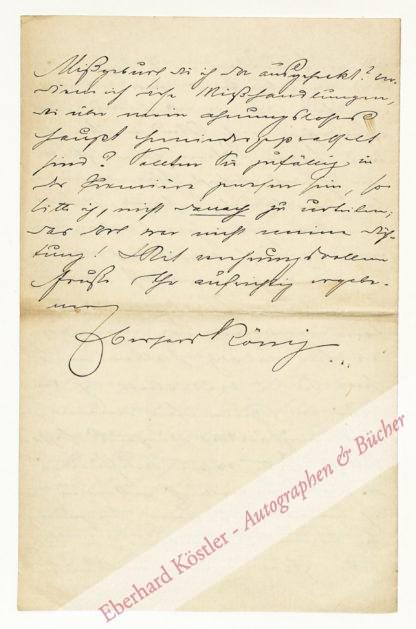 Mißgeburt die ich da ausgeheckt? ver-
diene ich die Mißhandlungen,
die über mein ahnungsloses
Haupt herniedergeprasselt
sind? Sollten Sie zufällig in
der Première gewesen sein, so
bitte ich, nicht danach zu urteilen;
das war nicht meine Dich-
tung! Mit verehrungsvollem
Gruße Ihr aufrichtig ergebe-
ner
Eberhard König
Eberhard Köstler - Autographen & Bücher